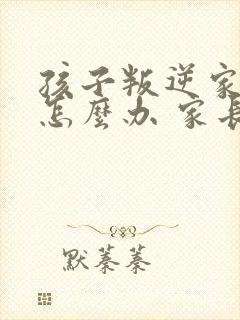 孩子叛逆家
怎麼办 家長
默蓁蓁